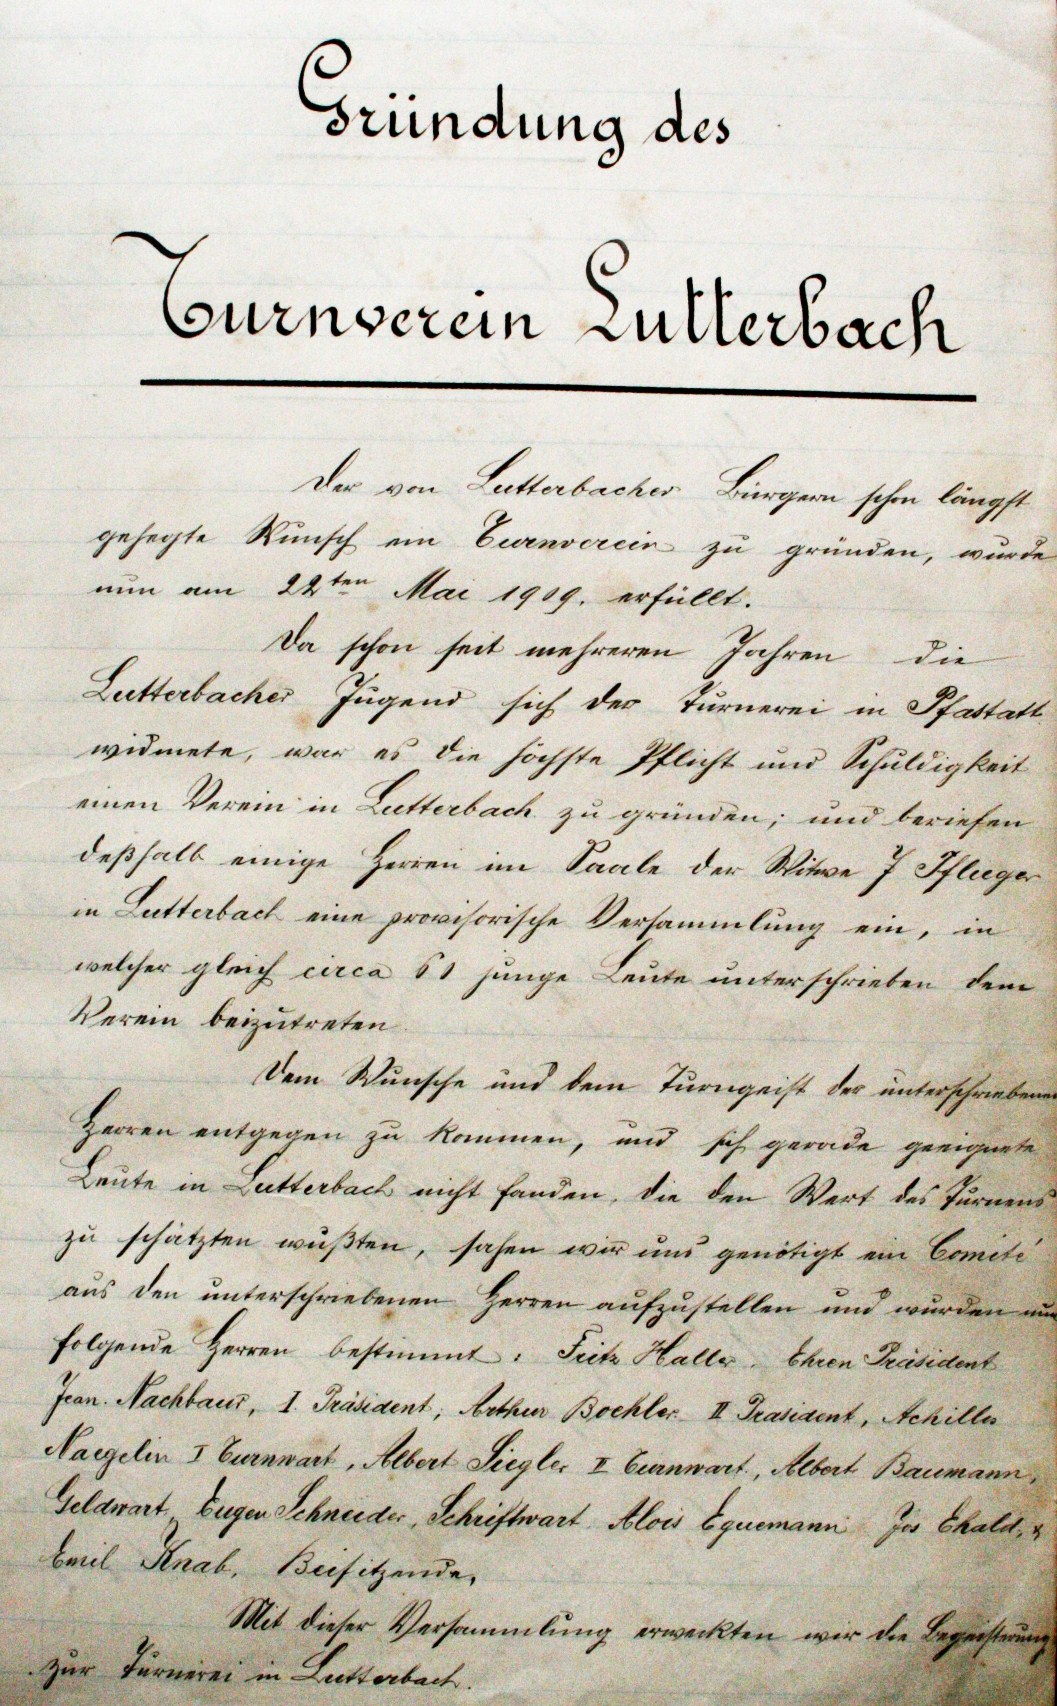 Gründung des
Turnverein Lutterbach
Der von Lutterbacher Bürgern schon längst
gehegte Wunsch ein Turnverein zu gründen, wurde
nun am 22ten Mai 1909. erfüllt.
Da schon seit mehreren Jahren die
Lutterbacher Jugend sich der Turnerei in Pfastatt
widmete, war es die höchste Pflicht und Schuldigkeit
einen Verein in Lutterbach zu gründen; und beriefen
deßhalb einige Herren im Saale der Witwe J Pflieger
in Lutterbach eine provisorische Versammlung ein, in
welcher gleich circa 61 junge Leute unterschrieben dem
Verein beizutreten.
Dem Wunsche und dem Turngeist der unterschriebenen
Herren entgegen zu kommen, und sich gerade geeignete
Leute in Lutterbach nicht fanden, die den Wert des Turnens
zu schätzten wußten, sahen wir uns genötigt ein Comité
aus den unterschriebenen Herren aufzustellen und wurden nun
folgende Herren bestimmt: Fritz Haller. Ehren Präsident
Jean. Nachbaur, I. Präsident, Arthur Boehler II Präsident, Achilles
Naegelin I Turnwart, Albert Siegler II Turnwart, Albert Baumann,
Geldwart Eugen Schneider, Schriftwart Alois Equemann Jos Ehald, &
Emil Knab, Beisitzende.
Mit dieser Versammlung erweckten wir die Begeisterung
zur Turnerei in Lutterbach.